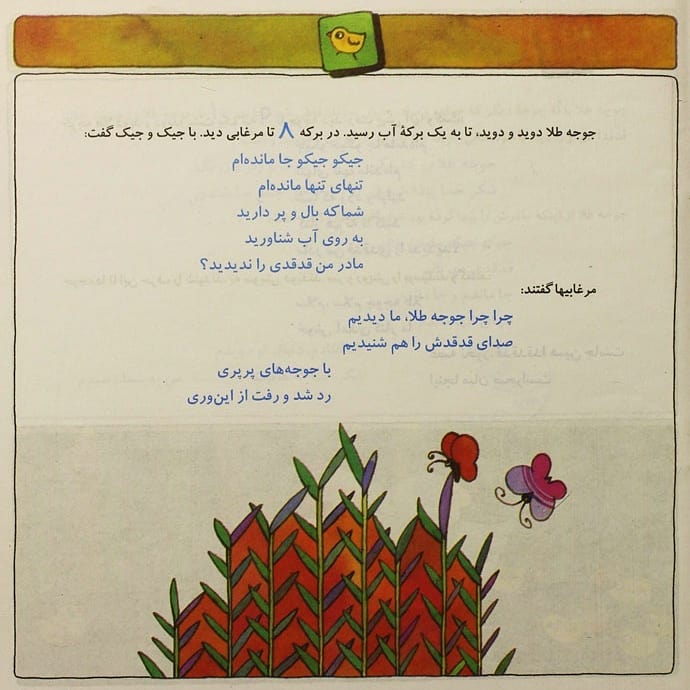 جوجه طلا دوید و دوید، تا به یک برکهٔ آب رسید. در برکه ۸ تا مرغابی دید. با جیک و جیک گفت:
جیکو جیکو جا مانده‌ام
تنهای تنها مانده‌ام
شما که بال و پر دارید
به روی آب شناورید
مادر من قدقدی را ندیدید؟
مرغابیها گفتند:
چرا چرا جوجه طلا، ما دیدیم
صدای قدقدش را هم شنیدیم
با جوجه‌های پرپری
رد شد و رفت از این‌وری